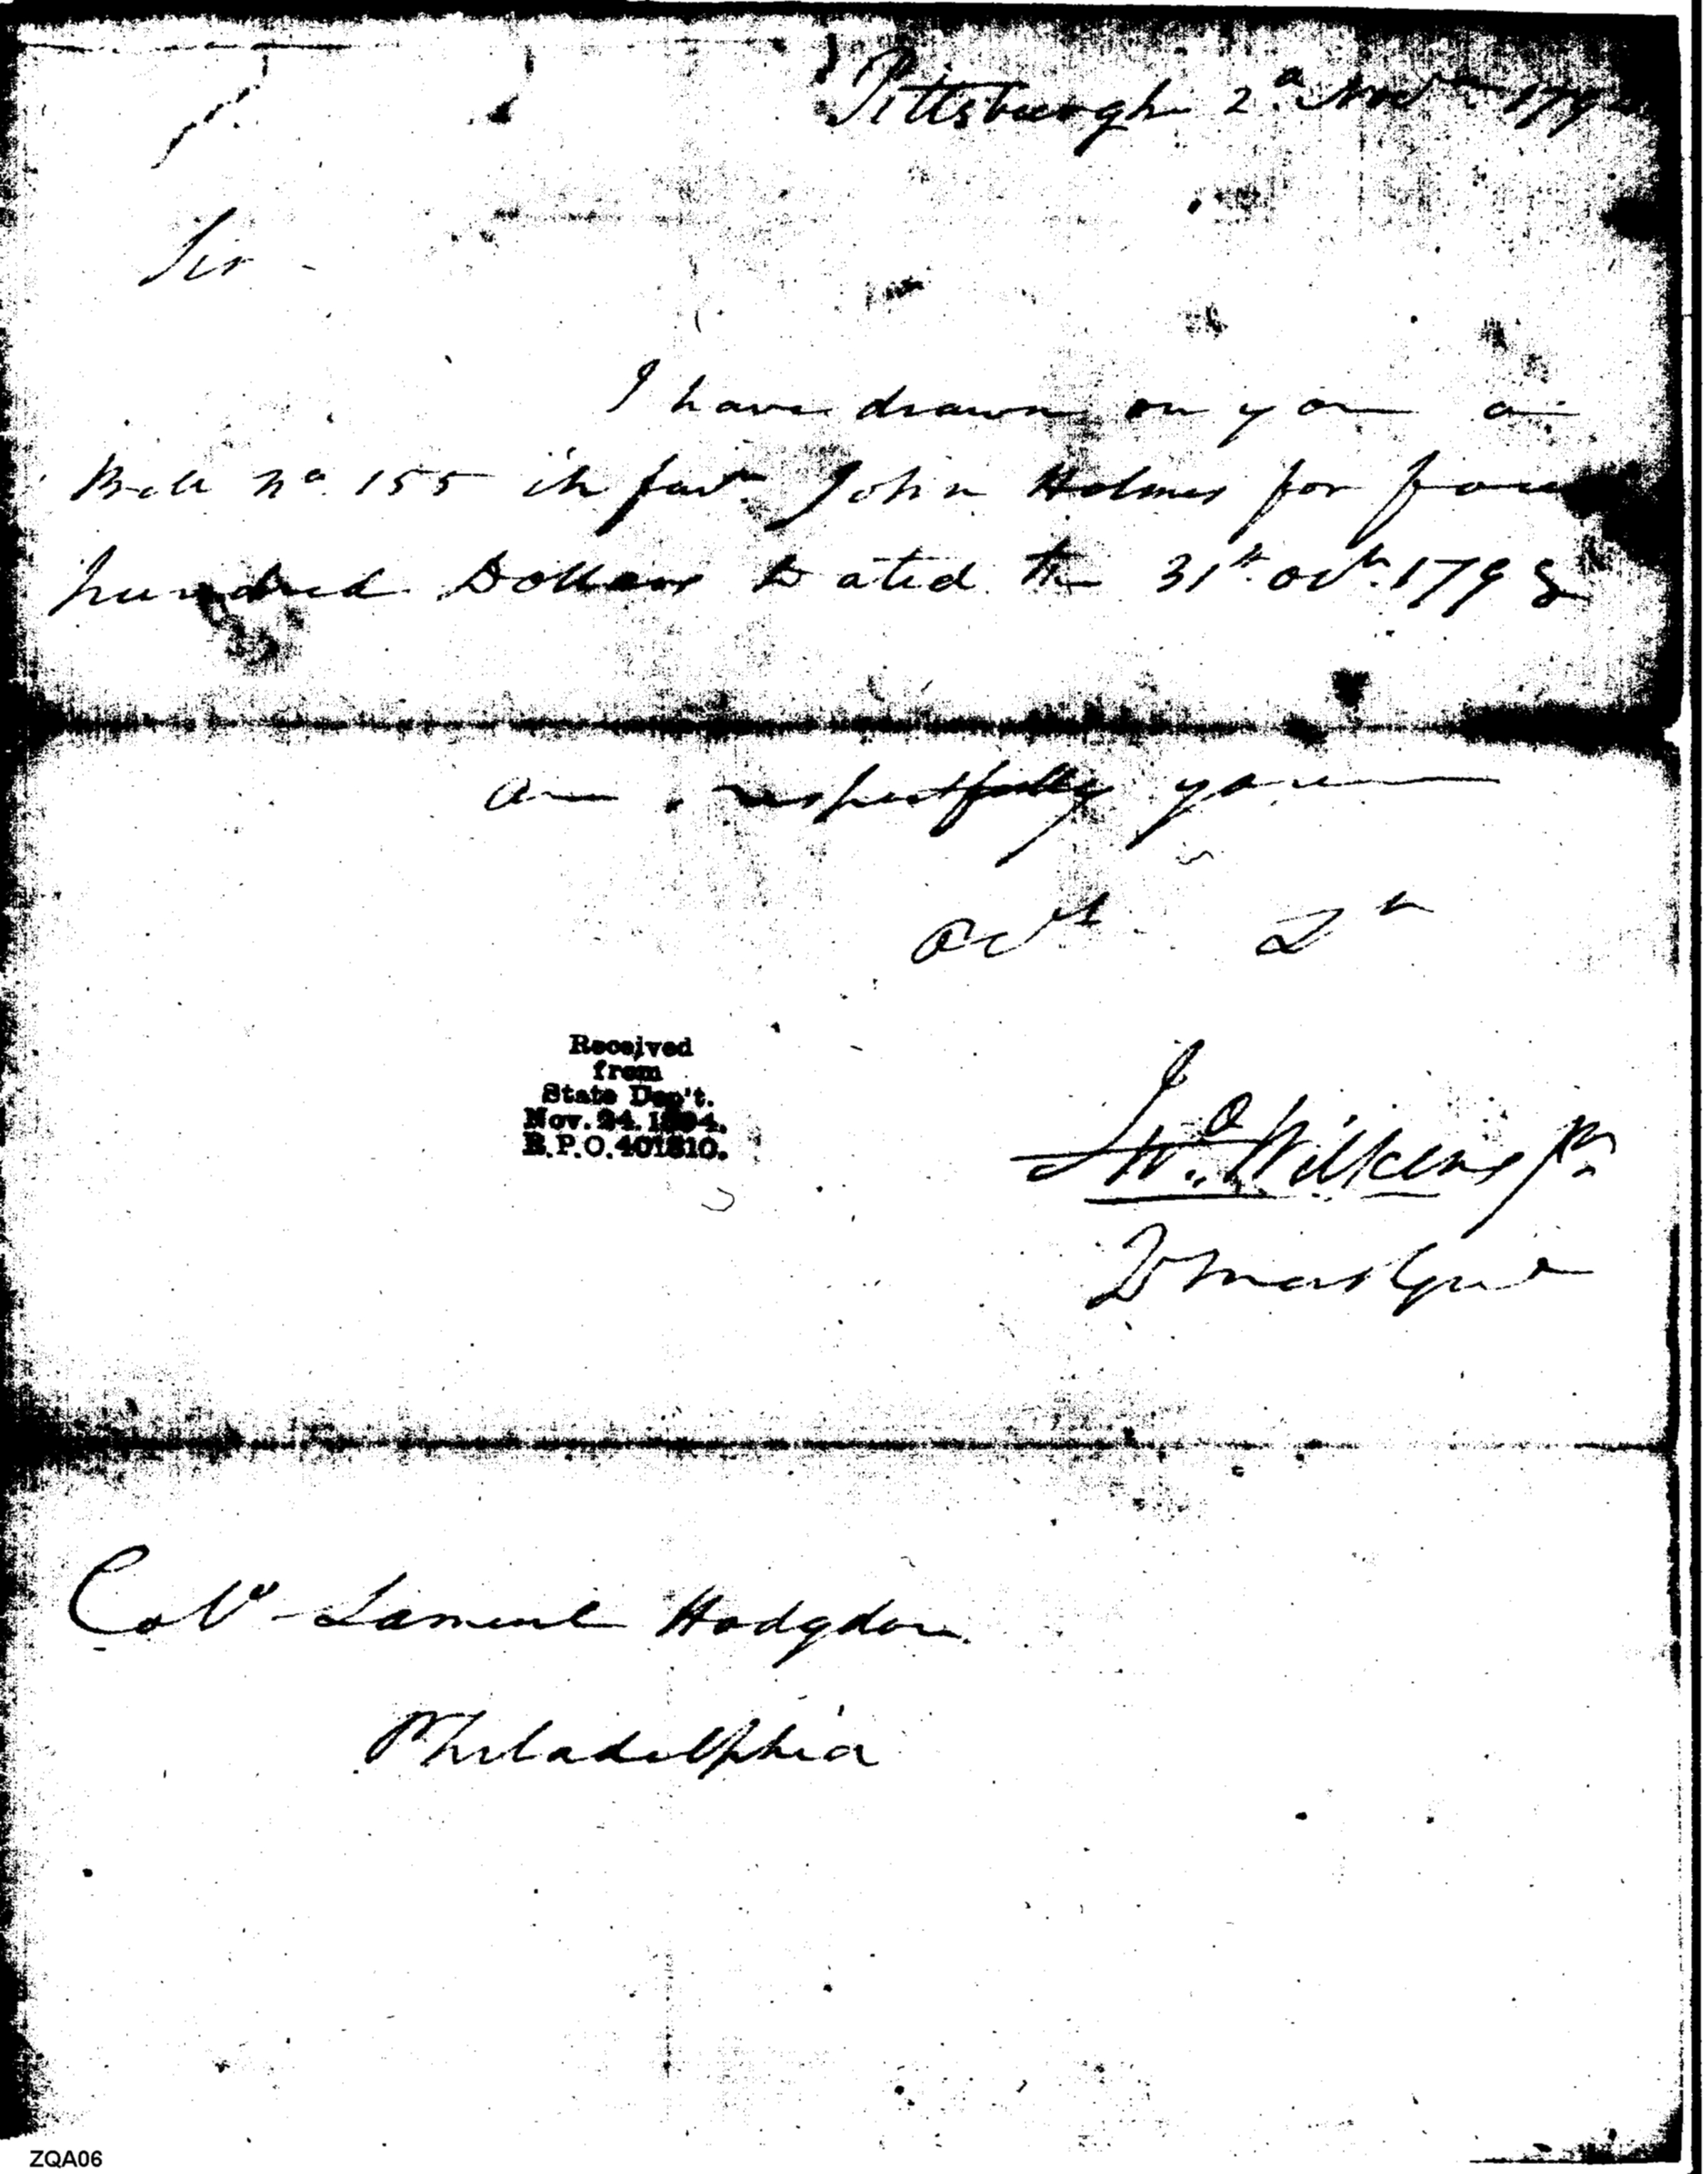 Pittsburgh 2d Novr 179
Sir -
I have drawn on you a
Bill No. 155 in favr John Holmes for four
hundred Dollars Dated the 31st. Octr. 1793
am respectfully your
Obt Sr
Jno Wilkins Jr
D masr Genl
Received
from
State Dep't.
Nov. 24. 1894.
R.P.O. 401810.
Colo - Samuel Hodgdon
Philadelphia
ZQA06